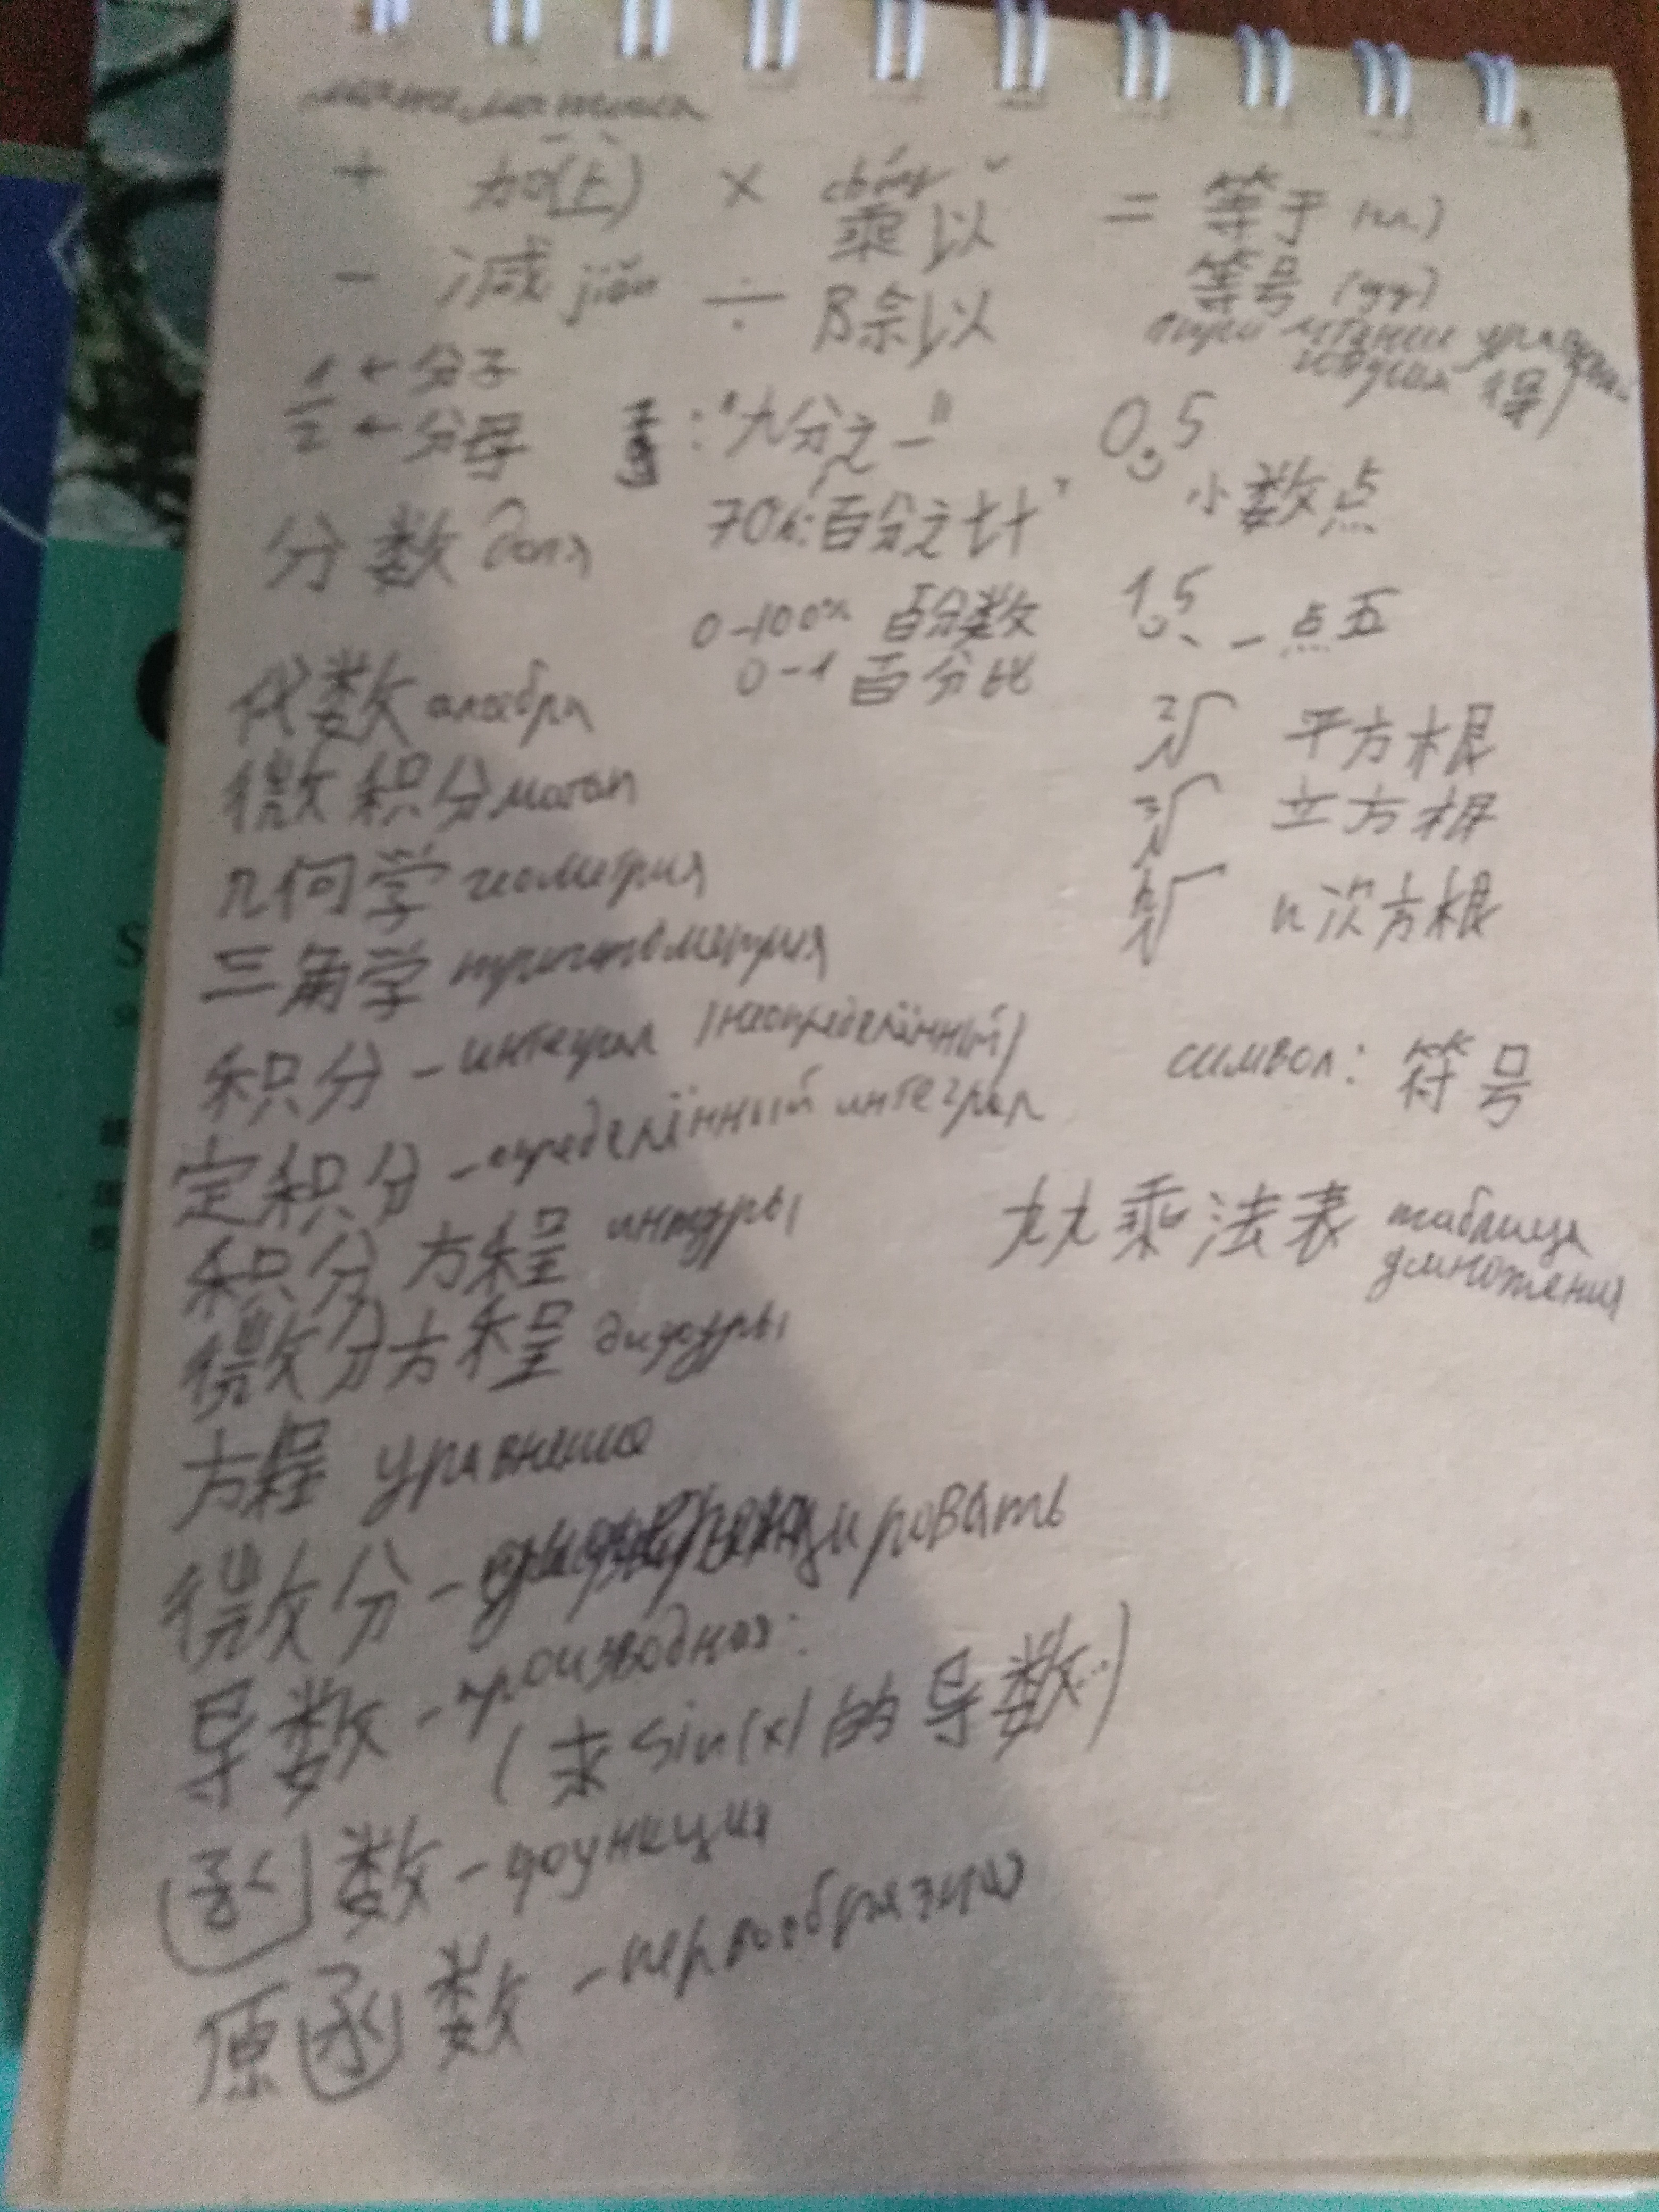 математика
+ 加(上) × chéng 乘以 = 等于 (гл.)
- 减 jiǎn ÷ 除以 等号
при чтении
得)
1 ← 分子
2 ← 分母 : "九分之一" 0,5
小数点
分数 доля 70%: 百分之七十
0-100% 百分数 1,5 一点五
0-1 百分比
代数 алгебра
²√ 平方根
微积分 матан
³√ 立方根
几何学 геометрия
ⁿ√ n次方根
三角学 тригонометрия
积分 - интеграл (неопределённый)
символ: 符号
定积分 - определённый интеграл
九九乘法表 таблица умножения
积分方程 интуры
微分方程 дифуры
方程 уравнение
微分 - дифференцировать
导数 - производная:
(求 sin(x) 的导数)
函数 - функция
原函数 - первообразная